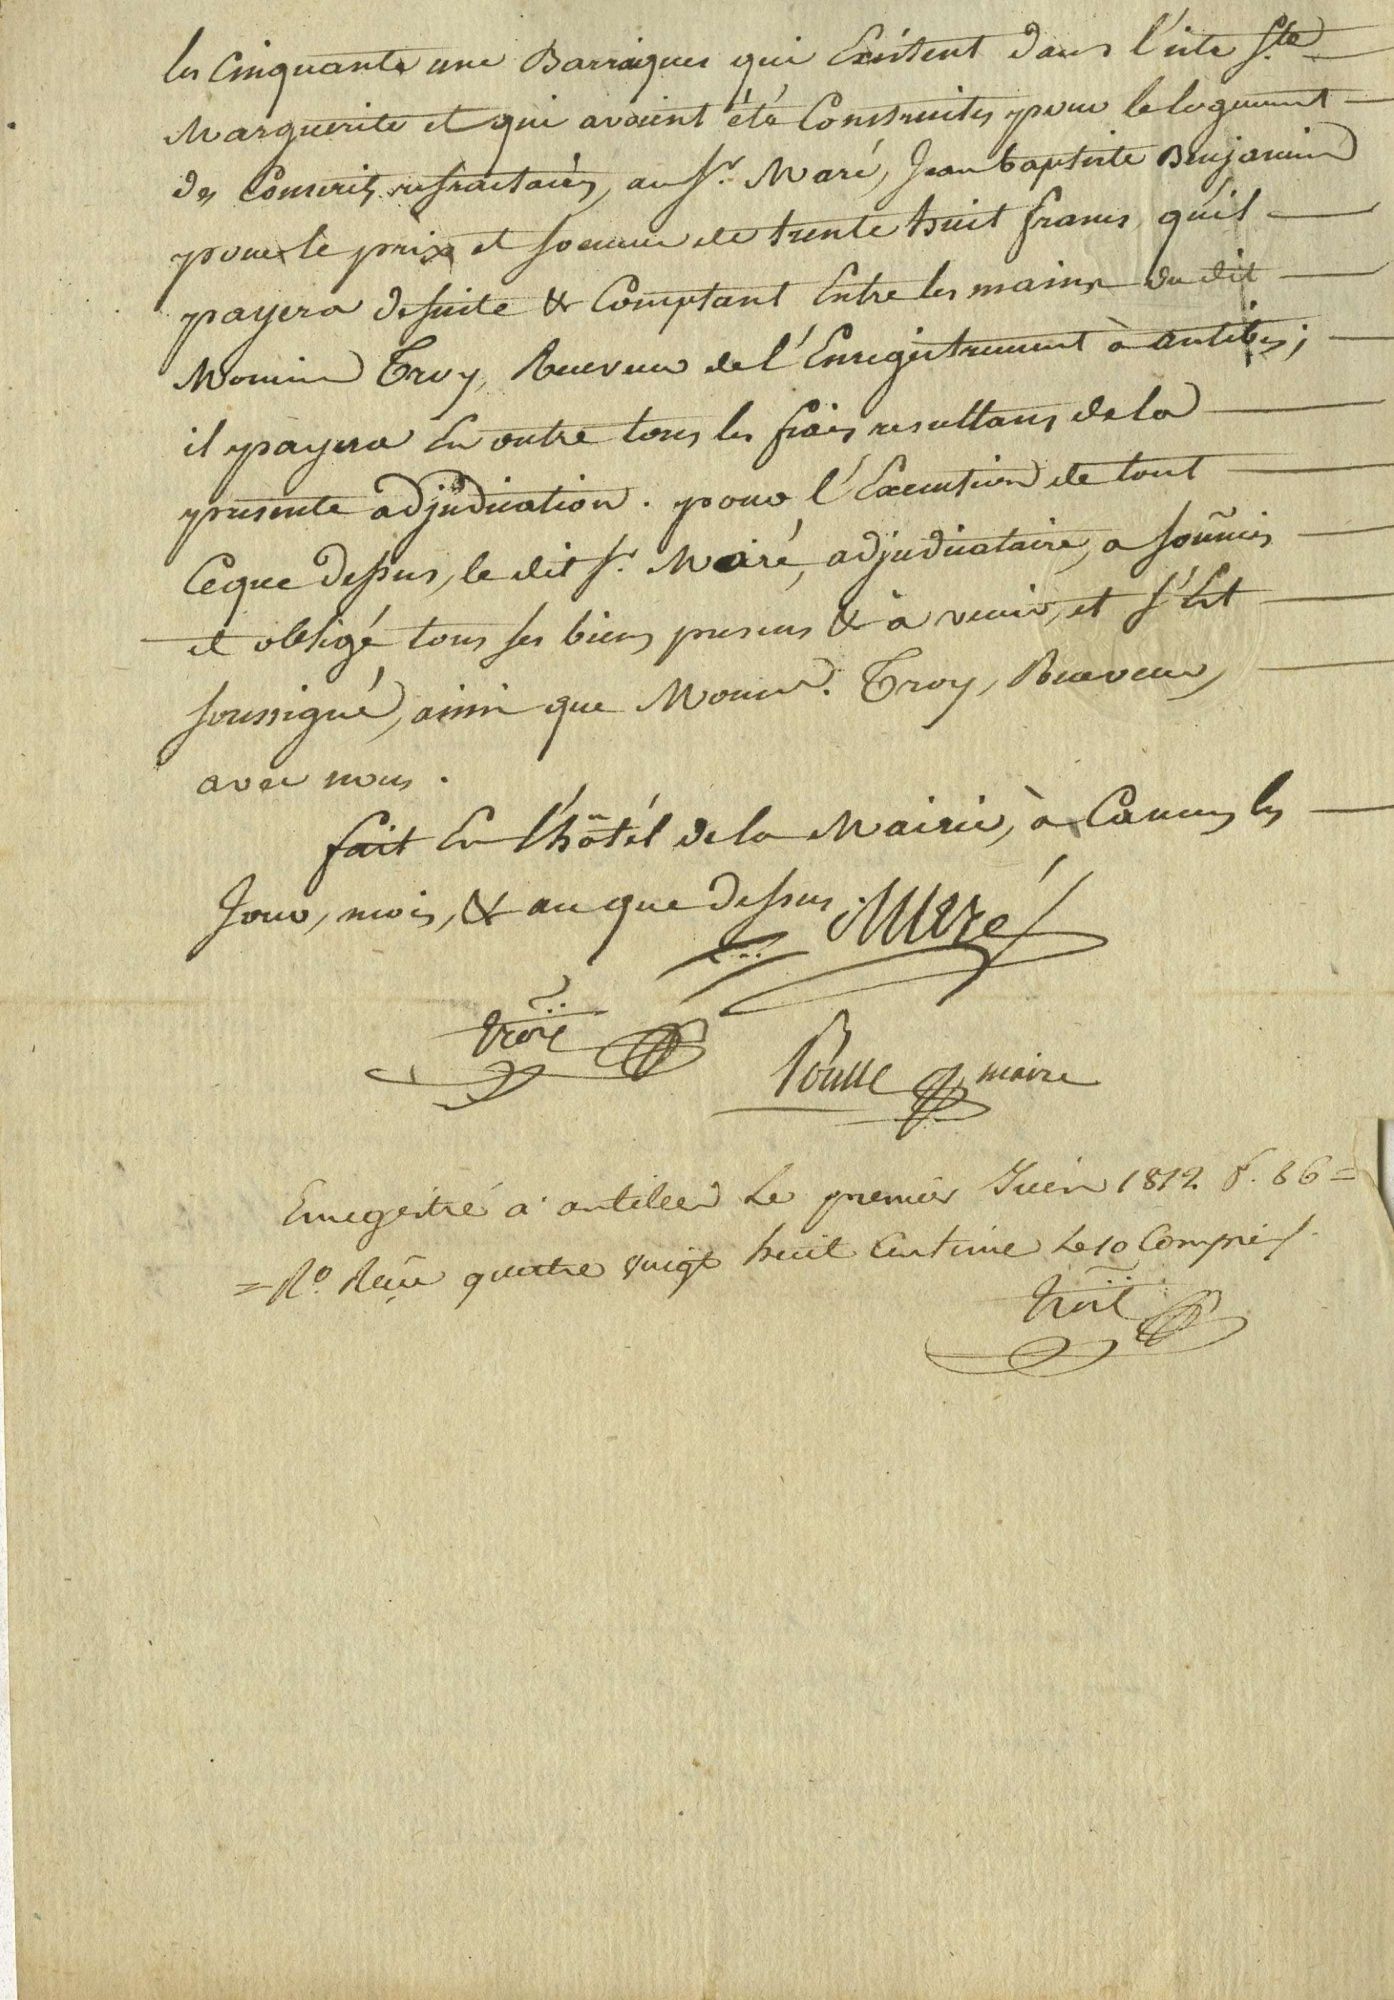 les Cinquante une Barraques qui Existent dans l'isle Ste
Marguerite et qui avaient été Construites pour le logement
des Conscrits refractaires, au Sr. Maré, Jean baptiste Benjamin
pour le prix et somme de trente huit francs, qu'il
payera desuite & Comptant Entre les mains du dit
Troy, Receveur de l'Enregistrement à antibes;
il payera En outre tous les frais resultans de la
presente adjudication. pour l'Execution de tout
Ceque dessus, le dit Sr. Maré, adjudicataire, a soumis
et obligé tous ses biens presens & à venir, et s'Est
soussigné, ainsi que Troy, Receveur,
avec nous.
fait En l'hôtel de la Mairie, à Cannes les
Jour, mois, & an que dessus.
Maré
Poulle maire
Enregistré a antibes Le premier Juin 1812 f. 86 =
= Ro. Reçu quatre vingt huit Centime Le 10 Compris